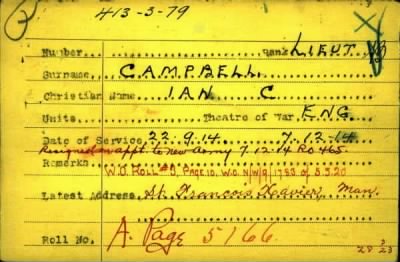 413-5-79
Number........ Rank LIEUT.
Surname CAMPBELL
Christian Name IAN C.
Units Theatre of War ENG.
Date of Service 22.9.14 7.12.14
Resigned on appt to new army 7.12.14 RO 465
Remarks
W.O. ROLL #9, PAGE 10. W.O. N/W/9. 1783 OF 5.5.20
Latest Address St. Francois Xavier, Man.
Roll No. A. Page 5166.